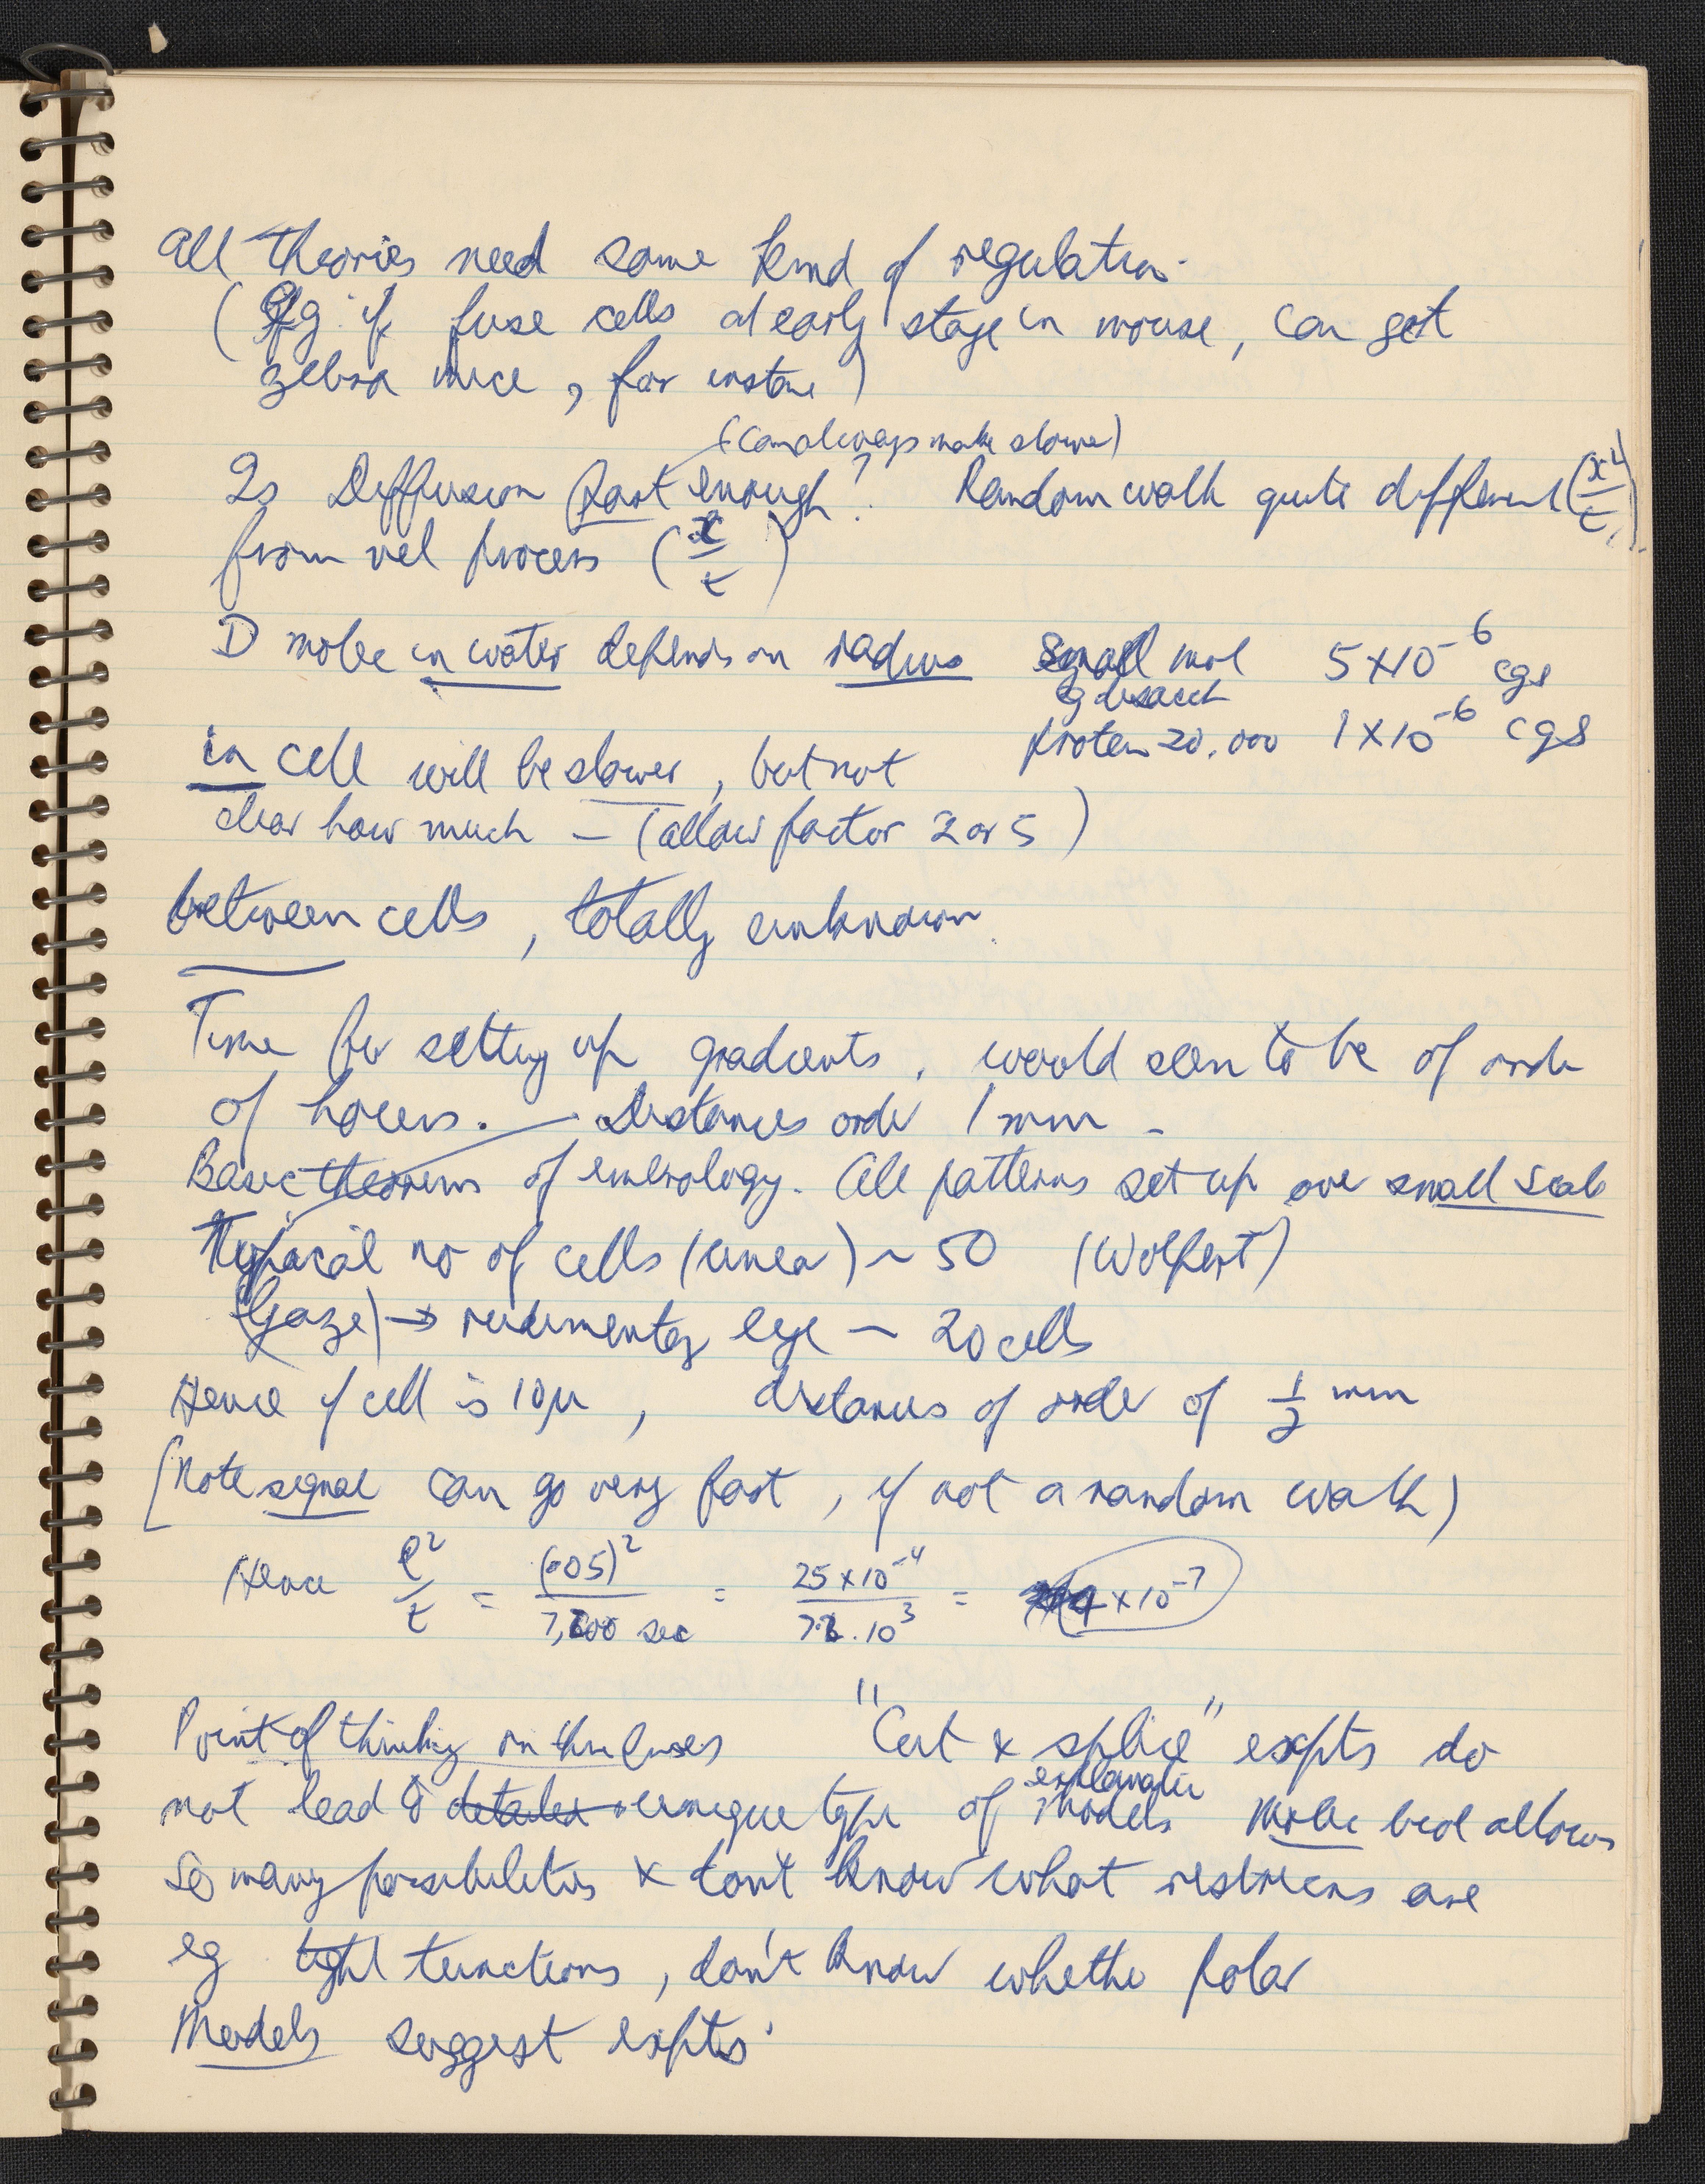 All theories need some kind of regulation.
(Eg if fuse cells at early stage in mouse, can get
zebra mice, for instance)
(can always make slower)
Is Diffusion fast enough? Random walk quite different (x²/t)
from vel process (x/t)
D molec in water depends on radius small mol 5 × 10⁻⁶ cgs
eg disacch
protein 20,000 1 × 10⁻⁶ cgs
in cell will be slower, but not
clear how much – (allow factor 2 or 5)
between cells, totally unknown.
Time for setting up gradients, would seem to be of order
of hours. – Distances order 1 mm –
Basic theorems of embryology. All patterns set up over small scale
Typical no of cells (linear) ~ 50 (Wolpert)
(Gaze) → rudimentary eye ~ 20 cells
Hence if cell is 10μ, distances of order of 1/2 mm
[Note signal can go very fast, if not a random walk)
Hence l²/t = (·05)²/7,200 sec = 25 × 10⁻⁴/7·2 . 10³ = 4 × 10⁻⁷
Point of thinking on these lines "Cut & splice" expts do
explanatory
not lead to detailed unique type of models Molec biol allows
so many possibilities & don't know what restrictions are
eg tight junctions, don't know whether polar
Models suggest expts.